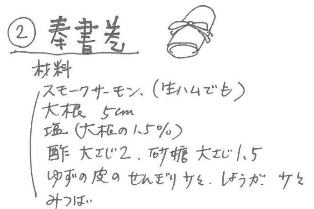 ② 奉書巻
材料
スモークサーモン、(生ハムでも)
大根 5cm
塩(大根の1.5%)
酢 大さじ2. 砂糖 大さじ1.5
ゆずの皮のせんぎり少々 しょうが 少々
みつば